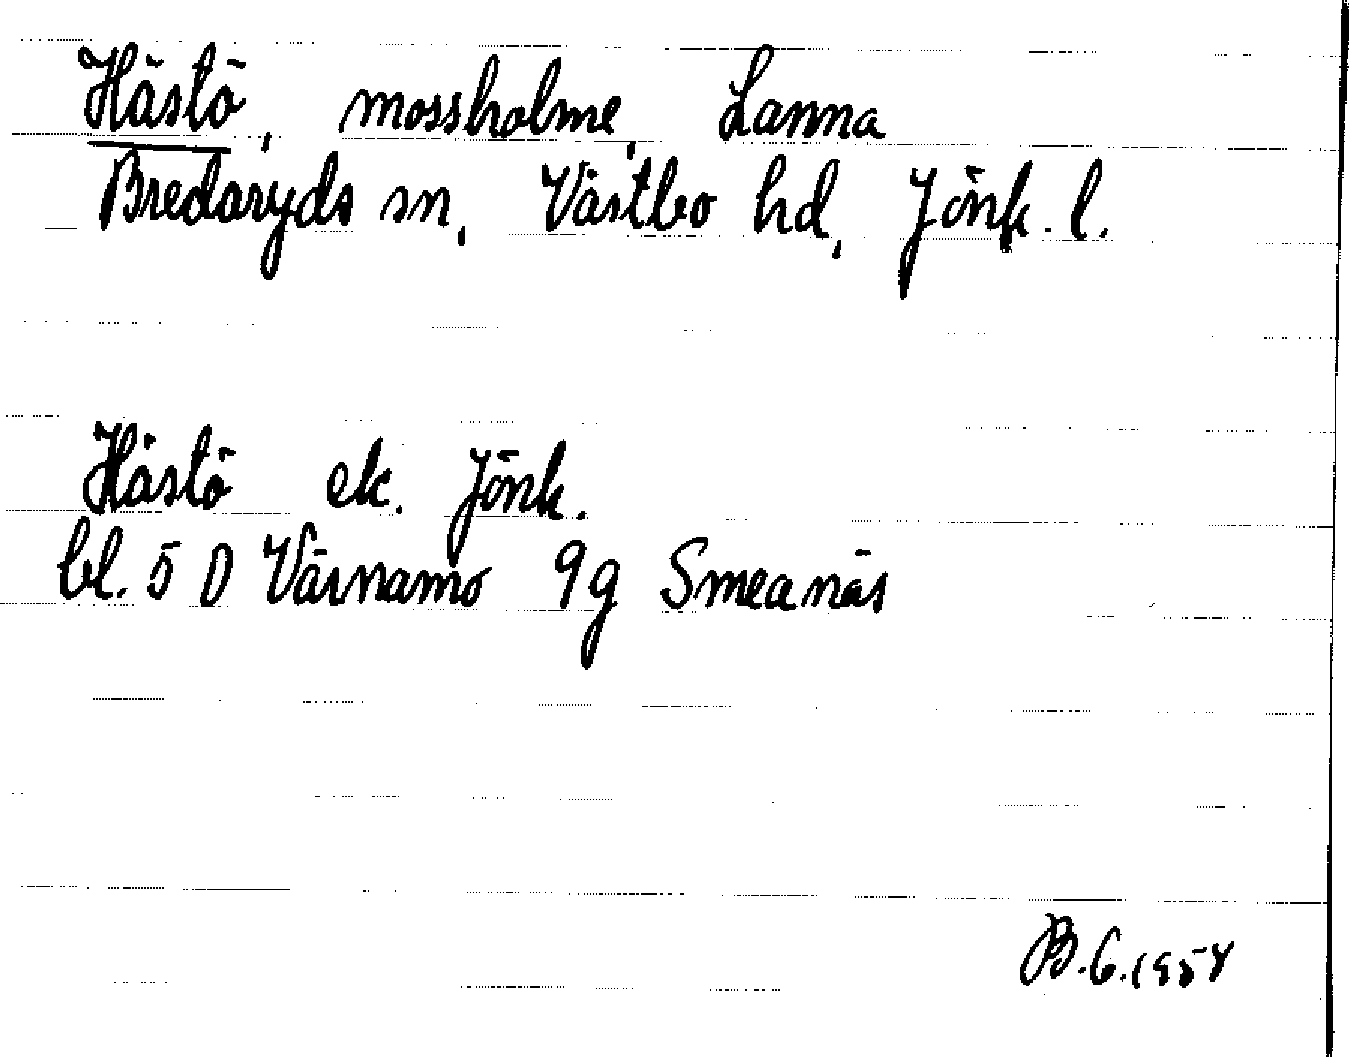 Hästö, mossholme, Lanna
Bredaryds sn, Västbo hd, Jönk. l.
Hästö ek. Jönk.
bl. 5 D Värnamo 9g Smeanäs
B.G. 1958